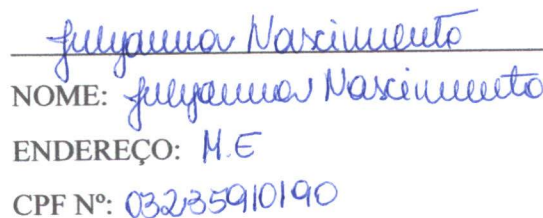 Julyanna Nascimento
NOME: Julyanna Nascimento
ENDEREÇO: M.E
CPF Nº: 03235910190